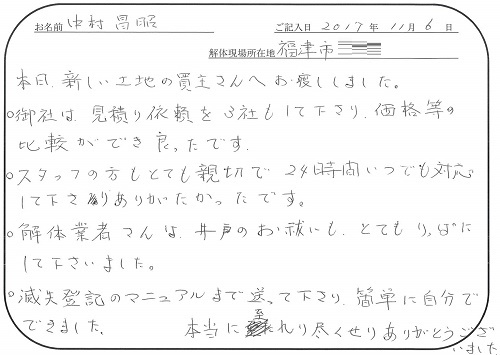 お名前 中村昌昭 ご記入日 2017年 11月 6日
解体現場所在地 福津市
本日、新しい土地の買主さんへお渡ししました。
○御社は、見積り依頼を3社もして下さり、価格等の
比較ができ良ったです。
○スタッフの方もとても親切で24時間いつでも対応
して下さりありがたかったです。
○解体業者さんは、井戸のお祓いも、とてもりっぱに
して下さいました。
○滅失登記のマニュアルまで送って下さり、簡単に自分で
できました。 本当に至れり尽くせりありがとうござ
いました